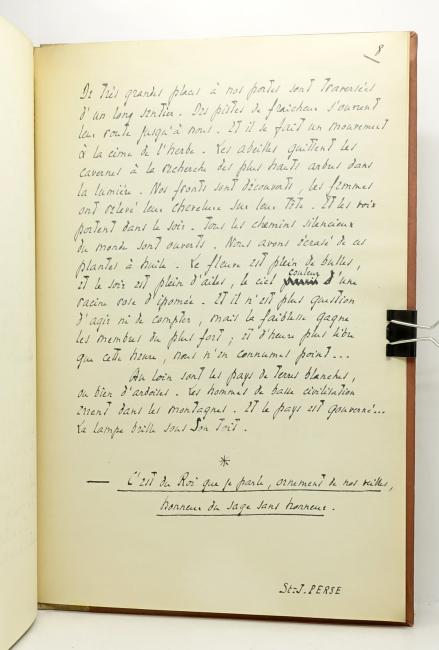 8
De très grandes places à nos portes sont traversées
d'un long sentier. Des pistes de fraîcheur s'ouvrent
leur route jusqu'à nous. Et il se fait un mouvement
à la cime de l'herbe. Les abeilles quittent les
cavernes à la recherche des plus hauts arbres dans
la lumière. Nos fronts sont découverts, les femmes
ont relevé leur chevelure sur leur tête. Et les voix
portent dans le soir. Tous les chemins silencieux
du monde sont ouverts. Nous avons écrasé de ces
plantes à huile. Le fleuve est plein de bulles,
et le soir est plein d'ailes, le ciel couleur d'une
racine rose d'ipomée. Et il n'est plus question
d'agir ni de compter, mais la faiblesse gagne
les membres du plus fort ; et d'heure plus libre
que cette heure, nous n'en connumes point...
Au loin sont les pays de terres blanches,
ou bien d'ardoises. Les hommes de basse civilisation
errent dans les montagnes. Et le pays est gouverné...
La lampe brille sous Son toit.
*
— C'est du Roi que je parle, ornement de nos veilles,
honneur du sage sans honneur.
St-J. PERSE